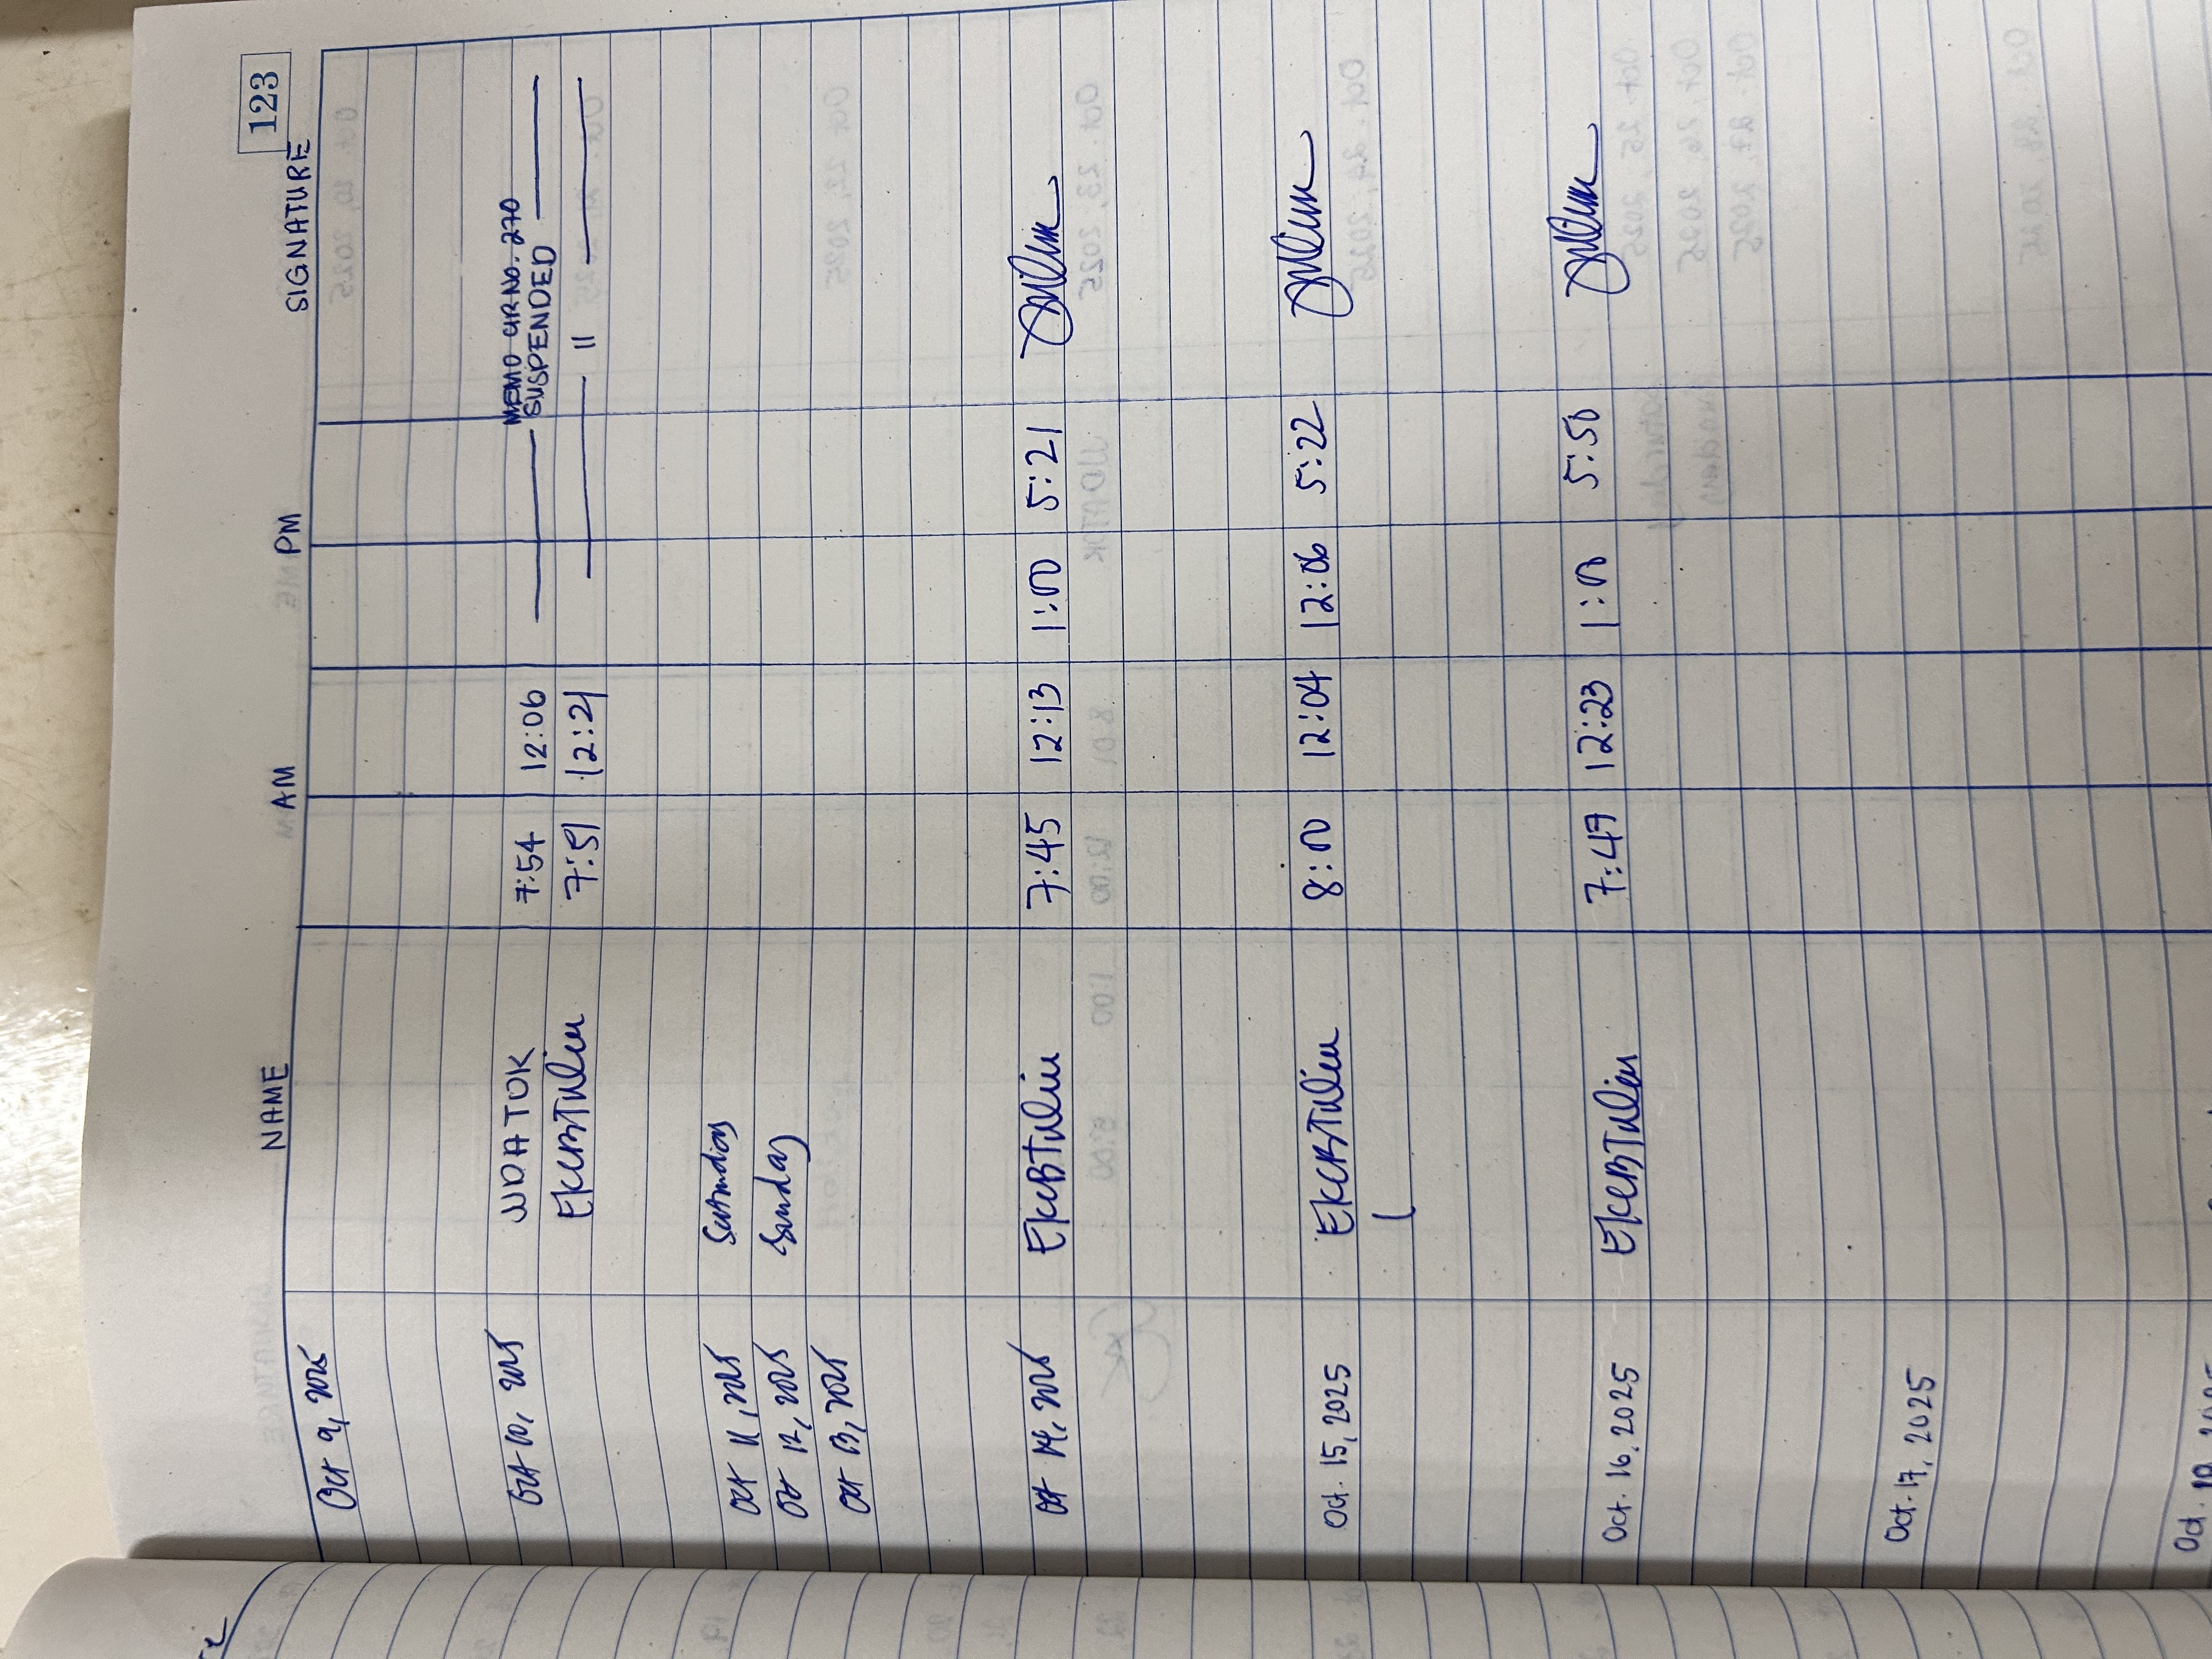 123
NAME AM PM SIGNATURE
Oct 9, 2025
MEMO CIR NO. 270
Oct 10, 2025 JJDATOK 7:54 12:06 SUSPENDED
EKCBTulin 7:51 12:21 "
Oct 11, 2025 Saturday
Oct 12, 2025 Sunday
Oct 13, 2025
Oct 14, 2025 EKCBTulin 7:45 12:13 1:00 5:21
Oct. 15, 2025 EKCBTulin 8:00 12:04 12:06 5:22
Oct. 16, 2025 EKCBTulin 7:47 12:23 1:00 5:50
Oct. 17, 2025
Oct.